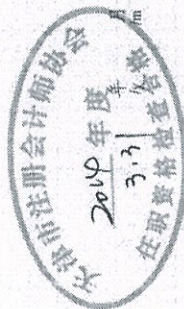 天津市注册会计师协会
2014 年度
3.31
任职资格检查合格
年 月
/m